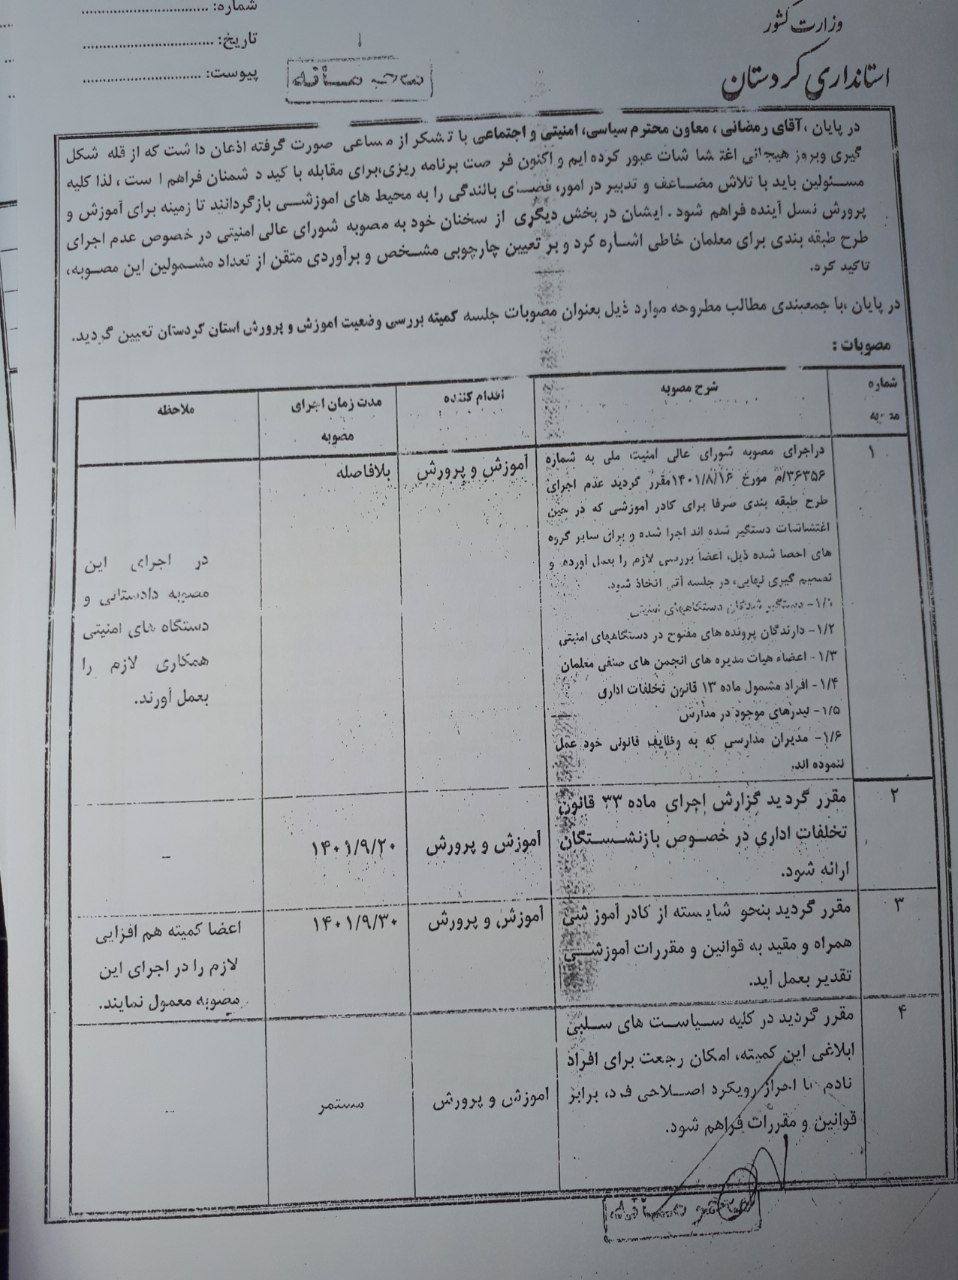 وزارت کشور
استانداری کردستان
شماره: ..............................
تاریخ: ..............................
پیوست: ..............................
در پایان ،آقای رمضانی ، معاون محترم سیاسی، امنیتی و اجتماعی با تشکر از مساعی صورت گرفته اذعان داشت که از قله شکل
گیری وبروز هیجانی اغتشاشات عبور کرده ایم و اکنون فرصت برنامه ریزی،برای مقابله با کید دشمنان فراهم است ، لذا کلیه
مسئولین باید با تلاش مضاعف و تدبیر در امور، فضای بالندگی را به محیط های اموزشی بازگردانند تا زمینه برای آموزش و
پرورش نسل آینده فراهم شود . ایشان در بخش دیگری از سخنان خود به مصوبه شورای عالی امنیتی در خصوص عدم اجرای
طرح طبقه بندی برای معلمان خاطی اشاره کرد و بر تعیین چارچوبی مشخص و برآوردی متقن از تعداد مشمولین این مصوبه،
تاکید کرد.
در پایان ،با جمعبندی مطالب مطروحه موارد ذیل بعنوان مصوبات جلسه کمیته بررسی وضعیت اموزش و پرورش استان کردستان تعیین گردید.
مصوبات :
شماره
شرح مصوبه
اقدام کننده
مدت زمان اجرای
مصوبه
ملاحظه
۱
دراجرای مصوبه شورای عالی امنیت ملی به شماره
۳۶۳۵۶/م مورخ ۱۴۰۱/۸/۱۶مقرر گردید عدم اجرای
طرح طبقه بندی صرفا برای کادر آموزشی که در حین
اغتشاشات دستگیر شده اند اجرا شده و برای سایر گروه
های احصا شده ذیل، اعضا بررسی لازم را بعمل آورده و
تصمیم گیری نهایی، در جلسه آتی اتخاذ شود.
۱/۱- دستگیر شدگان دستگاههای امنیتی
۱/۲- دارندگان پرونده های مفتوح در دستگاههای امنیتی
۱/۳- اعضاء هیات مدیره های انجمن های صنفی معلمان
۱/۴- افراد مشمول ماده ۱۳ قانون تخلفات اداری
۱/۵- لیدرهای موجود در مدارس
۱/۶- مدیران مدارسی که به وظایف قانونی خود عمل
ننموده اند.
آموزش و پرورش
بلافاصله
در اجرای این
مصوبه دادستانی و
دستگاه های امنیتی
همکاری لازم را
بعمل آورند.
۲
مقرر گردید گزارش اجرای ماده ۳۳ قانون
تخلفات اداری در خصوص بازنشستگان
ارائه شود.
آموزش و پرورش
۱۴۰۱/۹/۲۰
_
۳
مقرر گردید بنحو شایسته از کادر آموزشی
همراه و مقید به قوانین و مقررات آموزشی
تقدیر بعمل آید.
آموزش و پرورش
۱۴۰۱/۹/۳۰
اعضا کمیته هم افزایی
لازم را در اجرای این
مصوبه معمول نمایند.
۴
مقرر گردید در کلیه سیاست های سلبی
ابلاغی این کمیته، امکان رجعت برای افراد
نادم با احراز رویکرد اصلاحی فرد، برابر
قوانین و مقررات فراهم شود.
آموزش و پرورش
مستمر
_